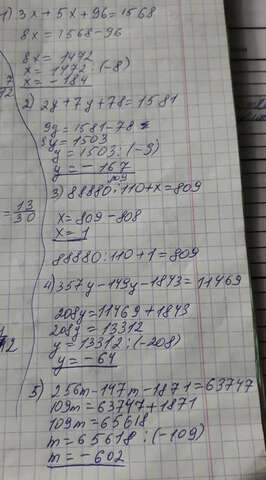 1) 3x + 5x + 96 = 1568
8x = 1568 - 96
8x = 1472
x = 1472 : (-8)
x = -184
2) 2y + 7y + 78 = 1581
9y = 1581 - 78
9y = 1503
y = 1503 : (-9)
y = -167
809
3) 88880 : 110 + x = 809
= 13/30
x = 809 - 808
x = 1
88880 : 110 + 1 = 809
4) 357y - 149y - 1843 = 11469
208y = 11469 + 1843
208y = 13312
y = 13312 : (-208)
y = -64
5) 256m - 147m - 1871 = 63747
109m = 63747 + 1871
109m = 65618
m = 65618 : (-109)
m = -602